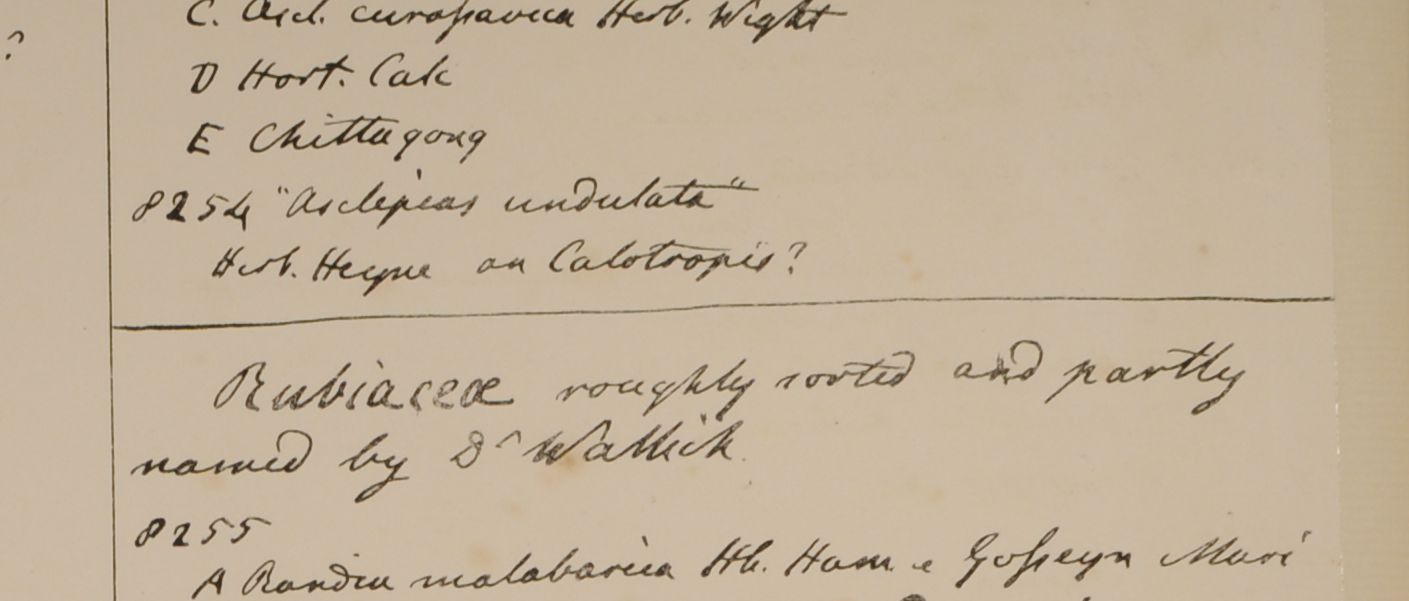 ?
C. Ascl. curassavica Herb. Wight
D Hort. Calc
E Chittagong
8254 "Asclepias undulata"
Herb. Heyne an Calotropis?
Rubiaceæ roughly sorted and partly
named by Dr Wallich.
8255
A Randia malabarica Hb. Ham. e Gosseyn Mari